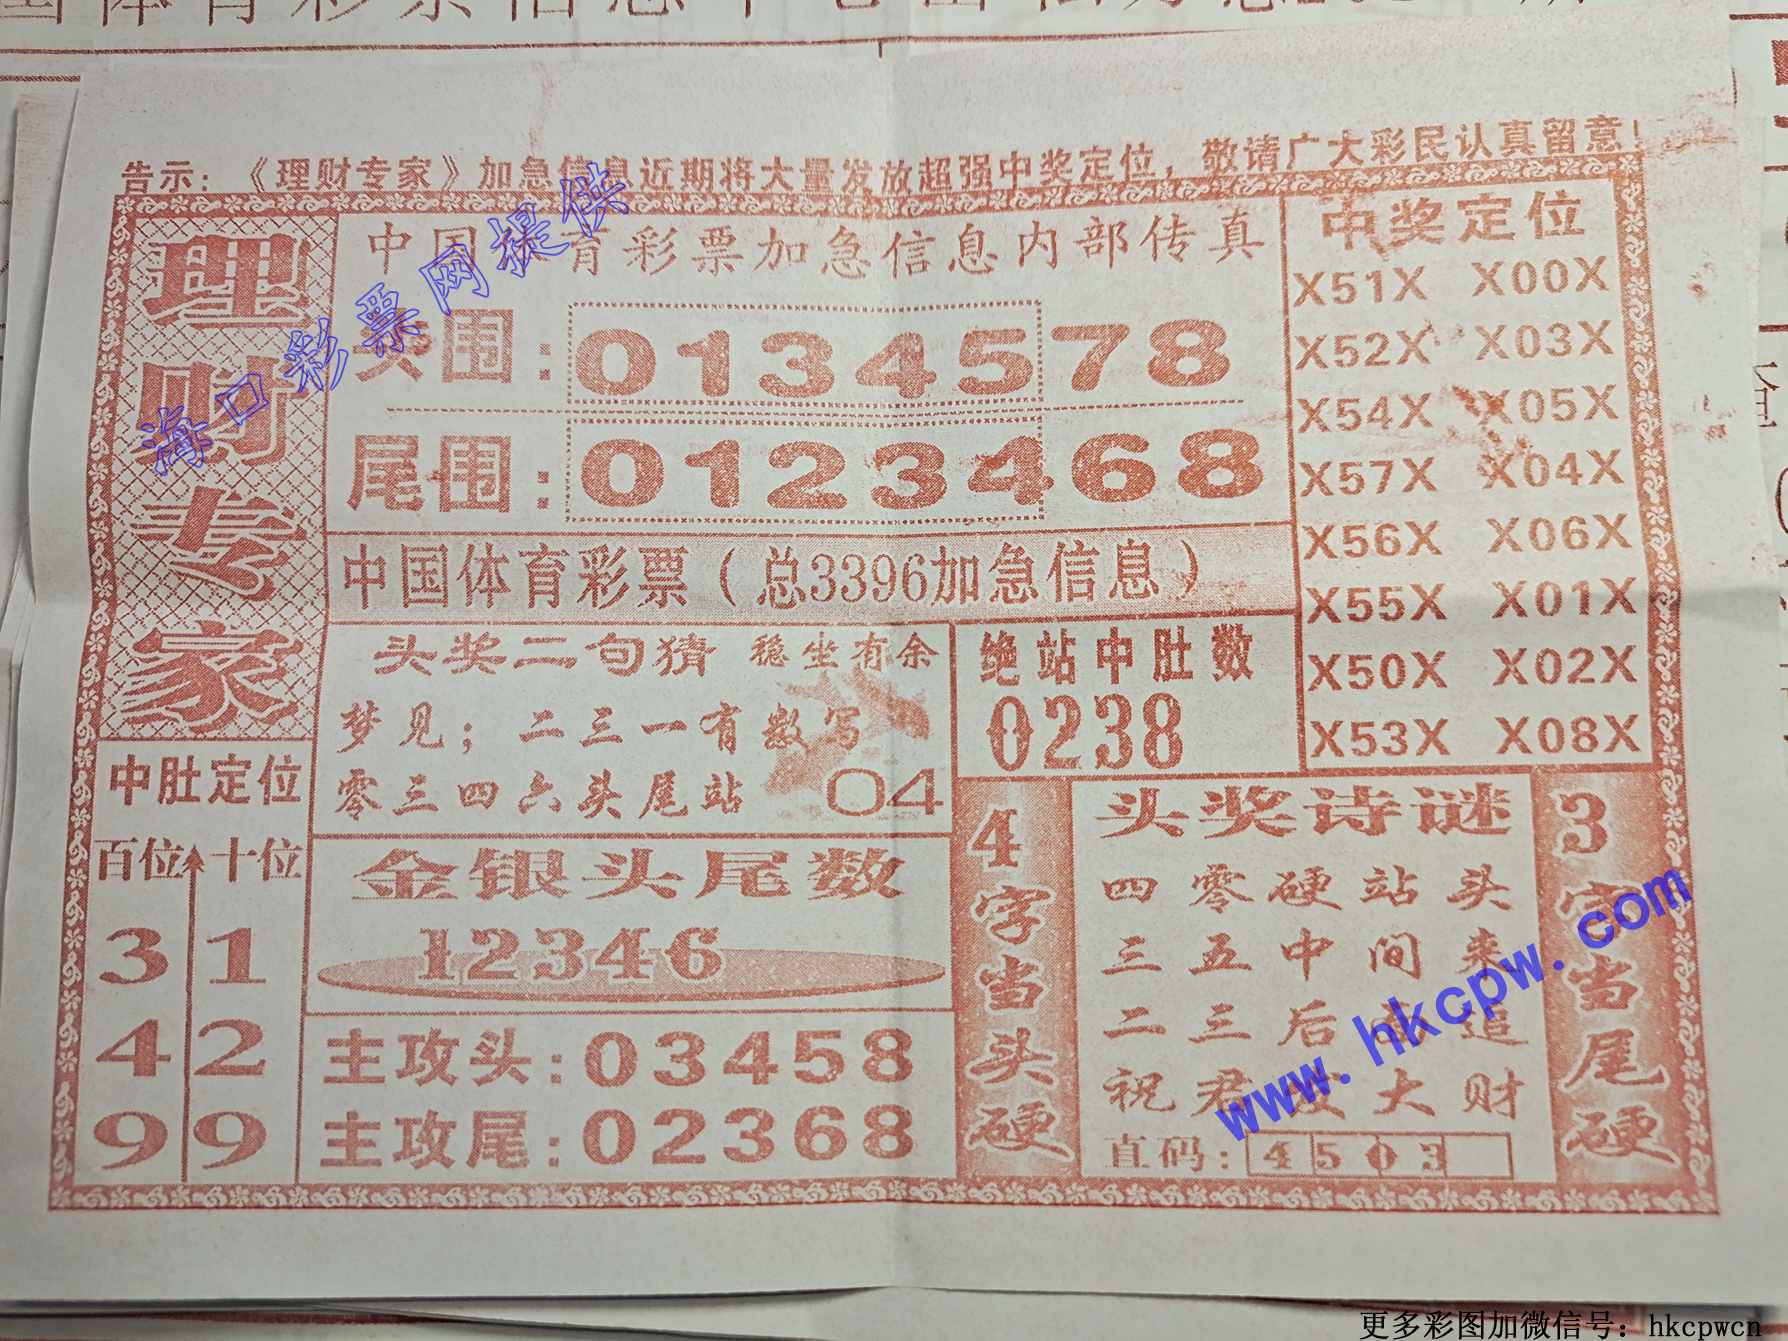 告示：《理财专家》加急信息近期将大量发放超强中奖定位，敬请广大彩民认真留意！
理财专家
中国体育彩票加急信息内部传真
头围：0134578
尾围：0123468
中国体育彩票（总3396加急信息）
中奖定位
X51X X00X
X52X X03X
X54X X05X
X57X X04X
X56X X06X
X55X X01X
X50X X02X
X53X X08X
头奖二句猜 稳坐有余
梦见；二三一有数写
零三四六头尾站 04
绝站中肚数
0238
中肚定位
百位 十位
3 1
4 2
9 9
金银头尾数
12346
主攻头：03458
主攻尾：02368
4字当头硬
头奖诗谜
四零硬站头
三五中间来
二三后面追
祝君发大财
直码：4503
3字当尾硬
海口彩票网提供
www.hkcpw.com
更多彩图加微信号：hkcpwcn